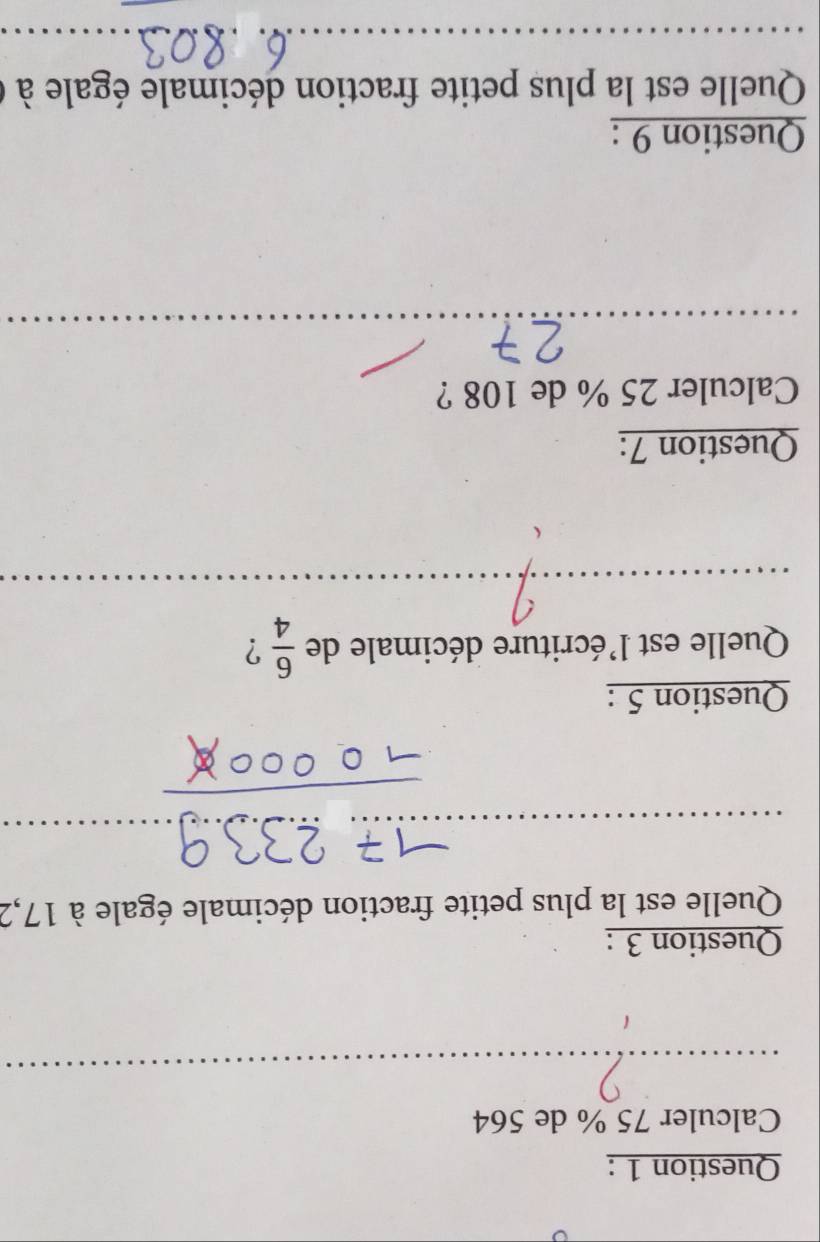 Question 1 :
Calculer 75 % de 564
?
Question 3 :
Quelle est la plus petite fraction décimale égale à 17,2
17 2339
10 0000
Question 5 :
Quelle est l'écriture décimale de 6/4 ?
?
Question 7:
Calculer 25 % de 108 ?
27
Question 9 :
Quelle est la plus petite fraction décimale égale à
6 803